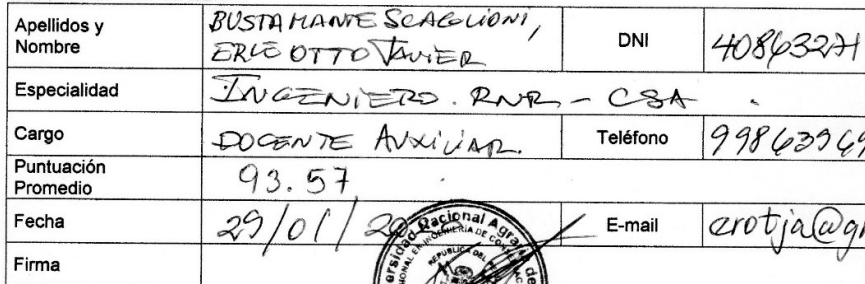 Apellidos y Nombre BUSTAMANTE SCAGLIONI, ERLE OTTO JAVIER DNI 40863271
Especialidad INGENIERO. RNR - CSA
Cargo DOCENTE AUXILIAR. Teléfono 99863969
Puntuación Promedio 93.57
Fecha 29/01/20 E-mail erotja@g
Firma